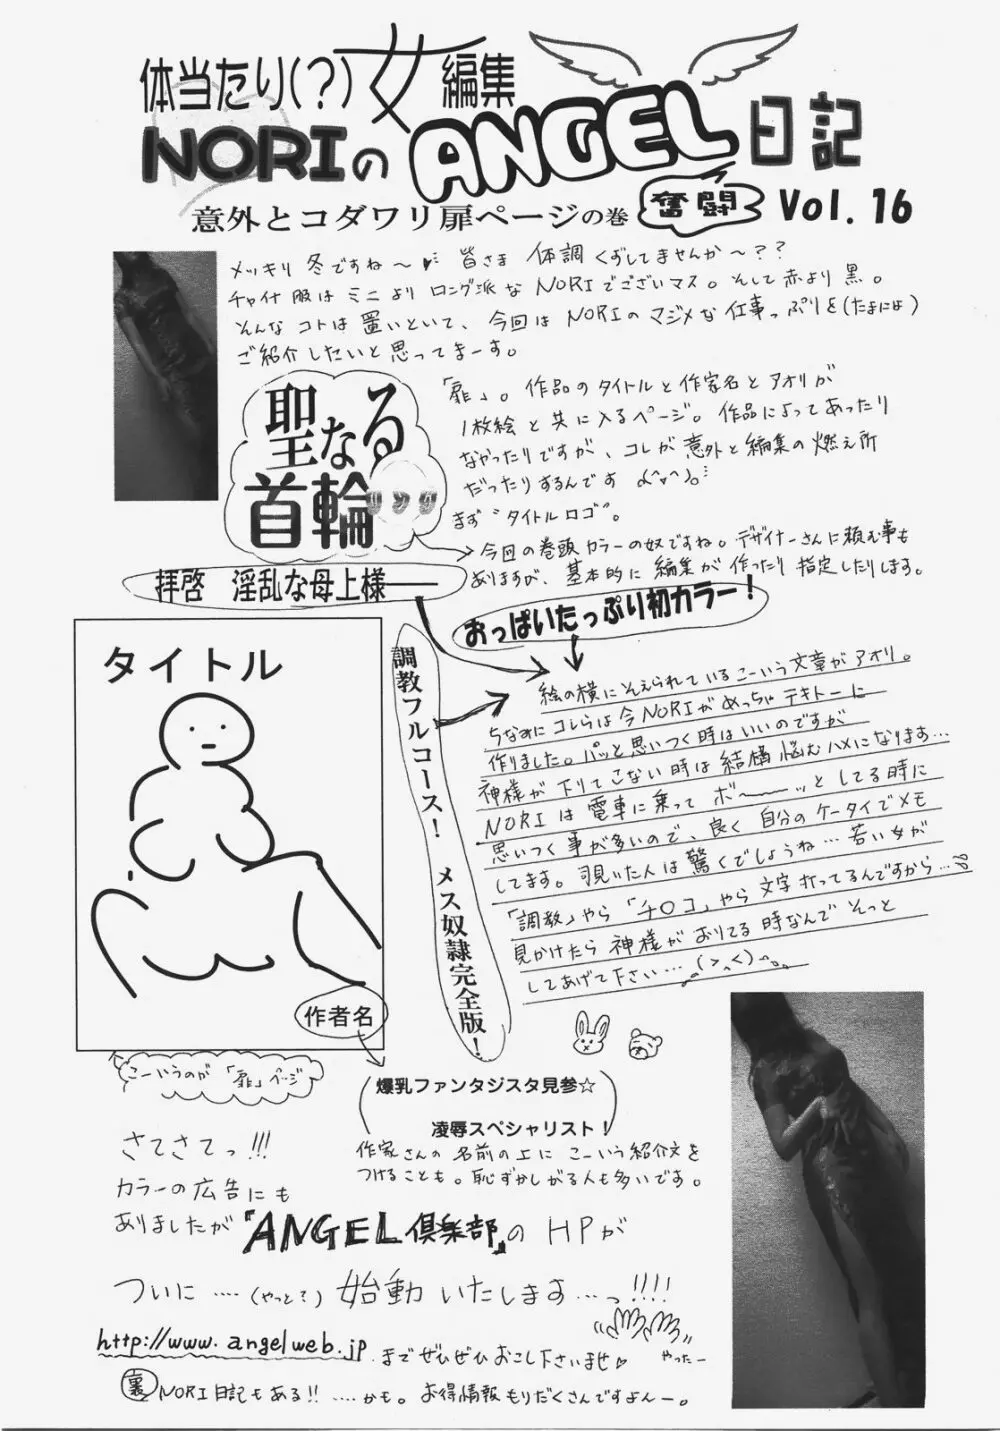 体当たり(?)女編集
NORIのANGEL日記
奮闘
Vol.16
意外とコダワリ扉ページの巻
メッキリ冬ですね〜 皆さま 体調くずしてませんか〜??
チャイナ服はミニよりロング派なNORIでございマス。そして赤より黒。
そんなコトは置いといて、今回はNORIのマジメな仕事っぷりを(たまにはね)
ご紹介したいと思ってまーす。
聖なる
首輪
「扉」。作品のタイトルと作家名とアオリが
1枚絵と共に入るページ。作品によってあったり
なかったりですが、コレが意外と編集の燃え所
だったりするんです
まず"タイトルロゴ"。
今回の巻頭カラーの奴ですね。デザイナーさんに頼む事も
ありますが、基本的に編集が作ったり指定したりします。
拝啓 淫乱な母上様――
おっぱいたっぷり初カラー!
調教フルコース! メス奴隷完全版!
絵の横にそえられているこーいう文章がアオリ。
ちなみにコレらは今NORIがめっちゃテキトーに
作りました。パッと思いつく時はいいのですが
神様が下りてこない時は結構悩むハメになります…
NORIは電車に乗ってボ〜〜ッとしてる時に
思いつく事が多いので、良く自分のケータイでメモ
してます。覗いた人は驚くでしょうね…若い女が
「調教」やら「チ○コ」やら文字打ってるんですから…
見かけたら神様がおりてる時なんでそっと
してあげて下さい…(>_<)
タイトル
作者名
こーいうのが「扉」ページ
爆乳ファンタジスタ見参☆
凌辱スペシャリスト!
作家さんの名前の上にこーいう紹介文を
つけることも。恥ずかしがる人も多いです。
さてさてっ!!!
カラーの広告にも
ありましたが『ANGEL倶楽部』のHPが
ついに……(やっと?)始動いたします…っ!!!!
やったー
http://www.angelweb.jp までぜひぜひおこし下さいませ
裏NORI日記もある!!……かも。お得情報もりだくさんですよん〜。